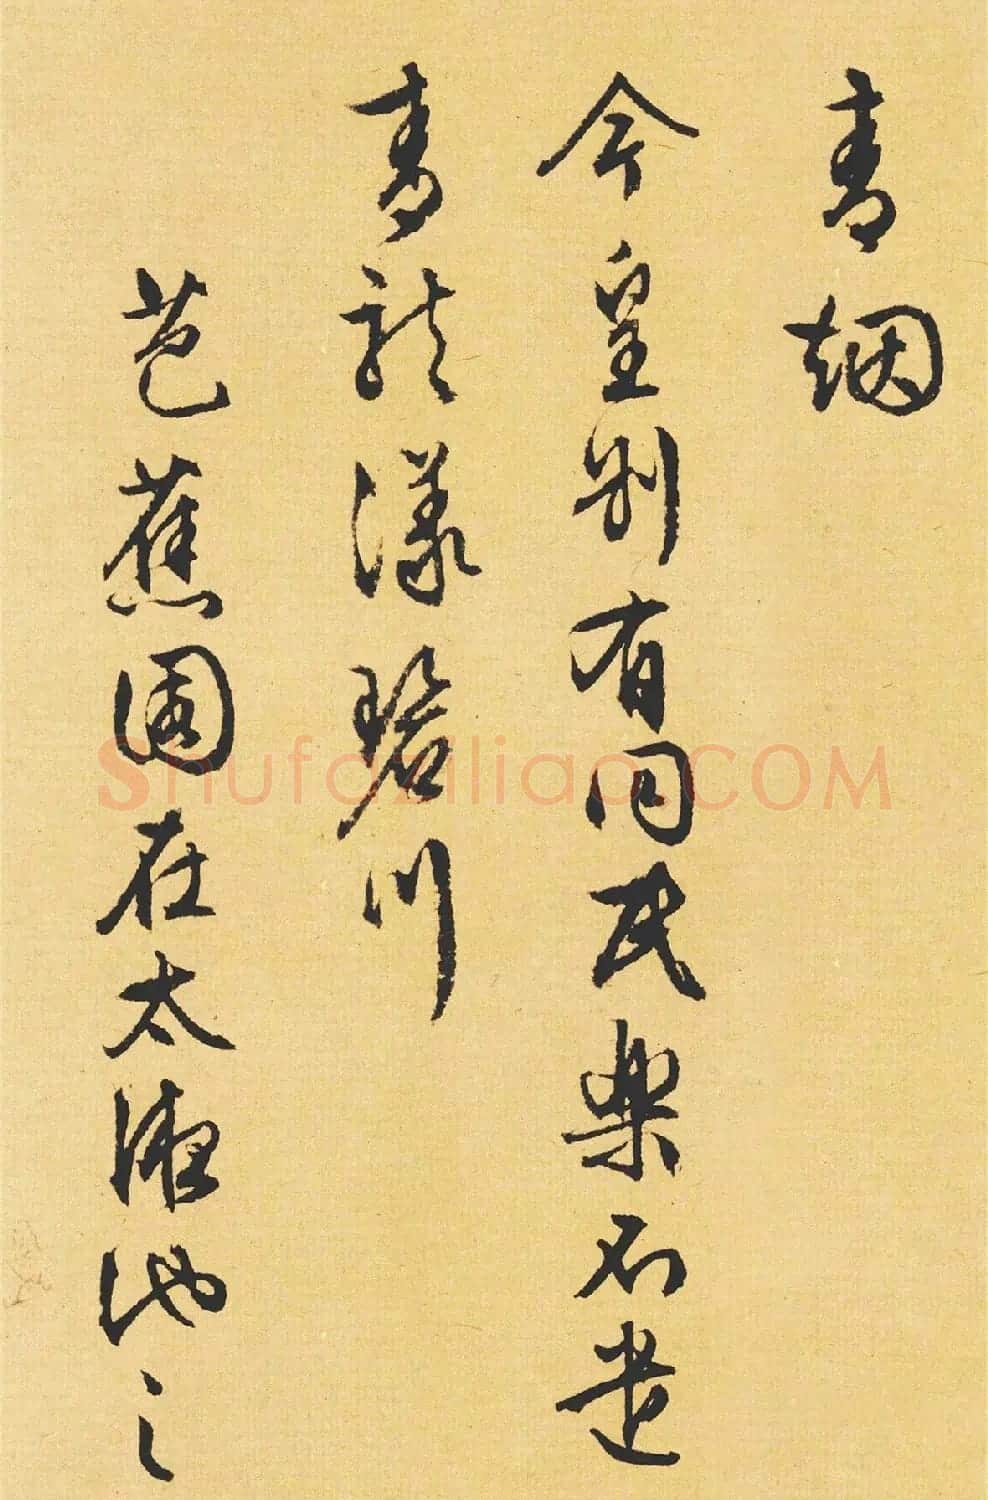 青烟
今皇别有同民樂不遣
青龍漾碧川
芭蕉園在太液池之
Shufaziliao.COM